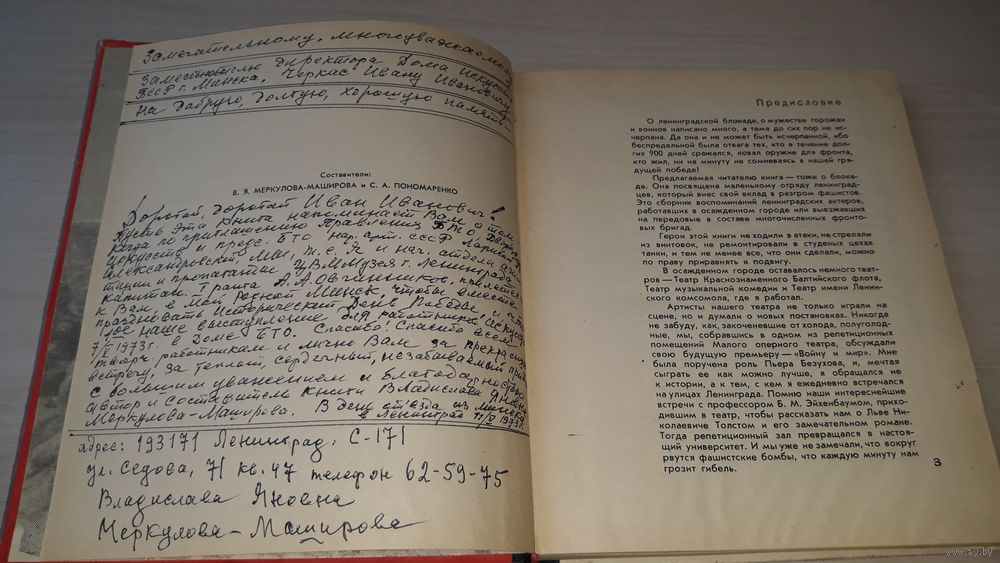 Замечательному, многоуважаемому
Заместителю директора Дома Искусств
БССР г. Минска, Черкас Ивану Ивановичу
На добрую, долгую, хорошую память –
Составители:
В. Я. МЕРКУЛОВА-МАШИРОВА и С. А. ПОНОМАРЕНКО
Дорогой, дорогой Иван Иванович!
Пусть эта книга напоминает Вам о том,
когда по приглашению Правления БТО Дворца
Искусств и през. БТО нар. арт. СССР
Александровской Л. И., т. е. Я и нач. отдела
и пропаганды ЦВМ Музея г. Ленинграда
капитан I ранга А. А. приехали
к Вам в мой родной Минск, чтобы вместе
праздновать исторический День Победы, и
наше выступление для работников искусств
7/V 1973 г. в Доме БТО. Спасибо! Спасибо всем
творч. работникам и лично Вам за прекрасную
встречу, за теплый, сердечный, незабываемый
с большим уважением и благодарностью
автор и составитель книги Владислава Яновна
Меркулова-Маширова. В день отъезда из Минска
в Ленинград 11/V 1973 г.
Адрес: 193171 Ленинград, С-171
ул. Седова, 71 кв. 47 телефон 62-59-75
Владислава Яновна
Меркулова-Маширова
Предисловие
О ленинградской блокаде, о мужестве горожан
и воинов написано много, а тема до сих пор не ис-
черпана. Да она и не может быть исчерпана, ибо
беспредельной была отвага тех, кто в течение дол-
гих 900 дней сражался, ковал оружие для фронта,
кто жил, ни на минуту не сомневаясь в нашей гря-
дущей победе!
Предлагаемая читателю книга — тоже о блока-
де. Она посвящена маленькому отряду ленинград-
цев, который внес свой вклад в разгром фашистов.
Это сборник воспоминаний ленинградских актеров,
работавших в осажденном городе или выезжавших
на передовые в составе многочисленных фронто-
вых бригад.
Герои этой книги не ходили в атаки, не стреляли
из винтовок, не ремонтировали в студеных цехах
танки, и тем не менее все, что они сделали, можно
по праву приравнять к подвигу.
В осажденном городе оставалось немного теат-
ров — Театр Краснознаменного Балтийского флота,
Театр музыкальной комедии и Театр имени Ленин-
ского комсомола, где я работал.
Артисты нашего театра не только играли на
сцене, но и думали о новых постановках. Никогда
не забуду, как, закоченевшие от холода, полуголод-
ные, мы собирались в одном из репетиционных
помещений Малого оперного театра, обсуждали
свою будущую премьеру — «Войну и мир». Мне
была поручена роль Пьера Безухова, и, мечтая
сыграть ее как можно лучше, я обращался не
к истории, а к тем, с кем я ежедневно встречался
на улицах Ленинграда. Помню наши интереснейшие
встречи с профессором Б. М. Эйхенбаумом, прихо-
дившим в театр, чтобы рассказать нам о Льве Ни-
колаевиче Толстом и его замечательном романе.
Тогда репетиционный зал превращался в настоя-
щий университет. И мы уже не замечали, что вокруг
рвутся фашистские бомбы, что каждую минуту нам
грозит гибель.
3
www.ay.by